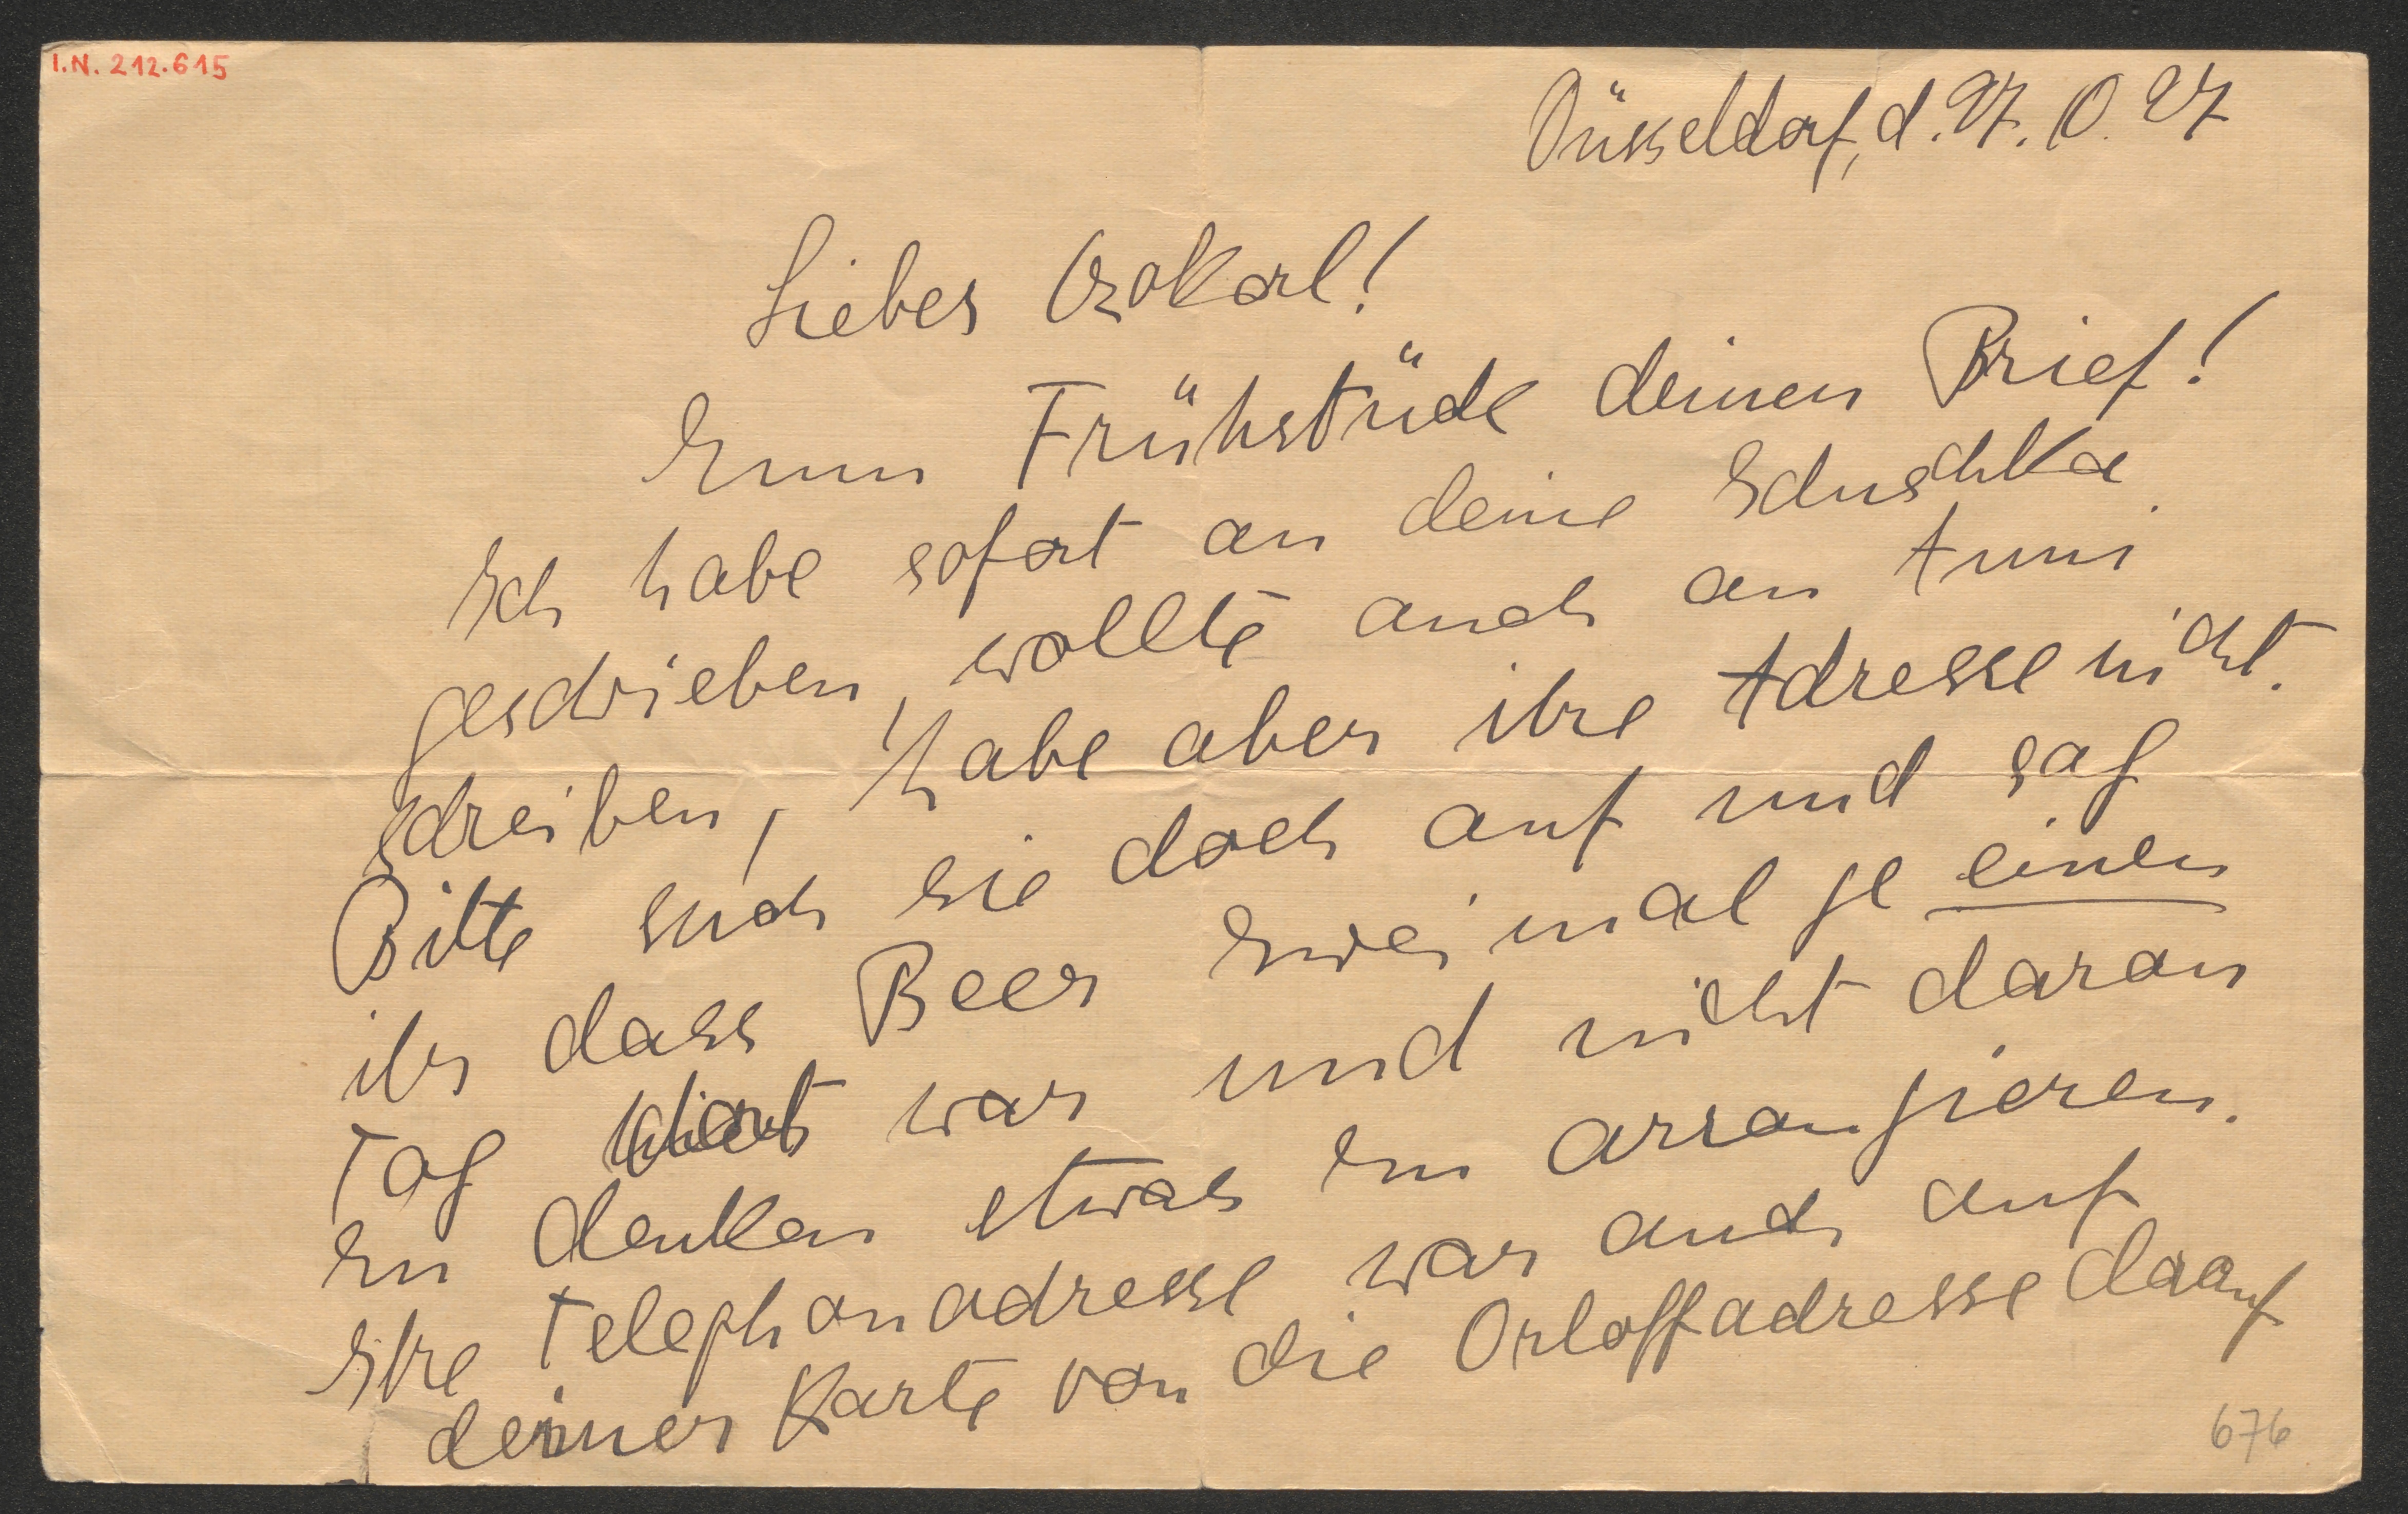 I.N. 212.615
Düsseldorf, d. 27. 10. 27
Liebes Czokarl!
Zum Frühstück deinen Brief!
Ich habe sofort an deine
geschrieben, wollte auch an Anni
schreiben, habe aber ihre Adresse nicht.
Bitte such sie doch auf und sag
ihr dass Beer zweimal je einen
Tag dort war und nicht daran
zu denken etwas zu arrangieren.
Ihre Telephonadresse war auch auf
deiner Karte von die Orloffadresse darauf
676